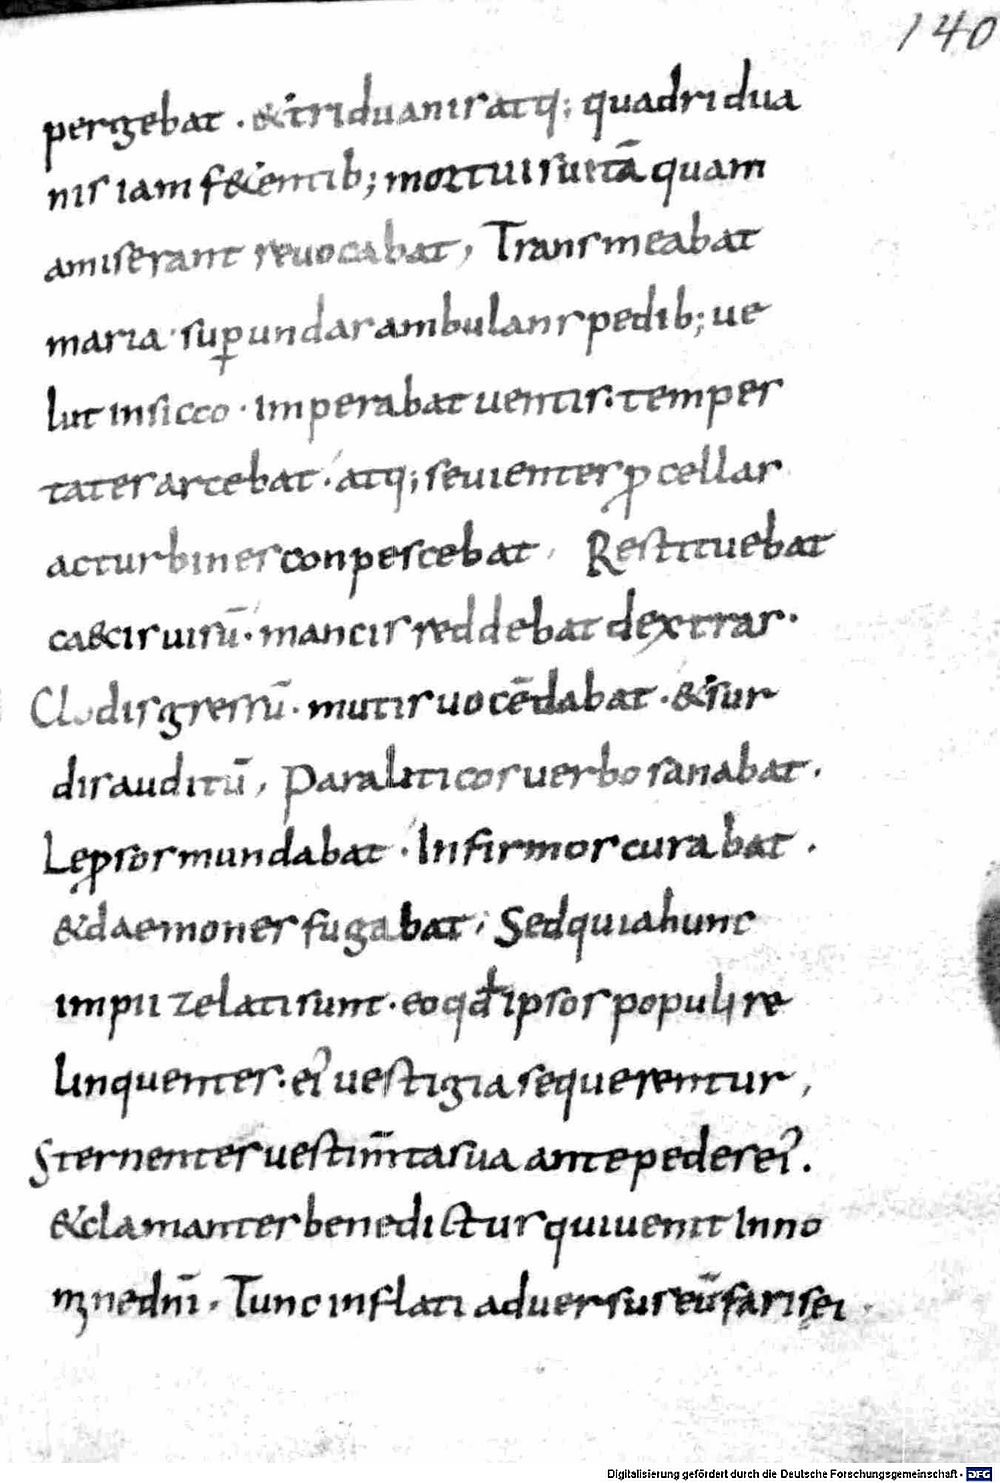 140
pergebat . & triduanis atq; quadridua
nis iam f&entib; mortuis uitā quam
amiserant reuocabat, Transmeabat
maria · sup̲ undas ambulans pedib; ue
lut insicco · imperabat uentis · tempes
tates arcebat · atq; seuientes ꝓcellas
ac turbines conpescebat, Restituebat
cæcis uisū · mancis reddebat dextras ·
Clodis gressū · mutis uocē dabat · & sur
dis auditū, Paraliticos uerbo sanabat .
Leprosos mundabat · Infirmos curabat .
& daemones fugabat; Sed quia hunc
impii zelati sunt · eo qđ ipsos populi re
linquentes · eiꝰ uestigia sequerentur,
Sternentes uestim̄ta sua ante pedes eiꝰ .
& clamantes benedictus qui uenit In no
mine dn̄i . Tunc inflati aduersus eū farisei .
Digitalisierung gefördert durch die Deutsche Forschungsgemeinschaft - DFG